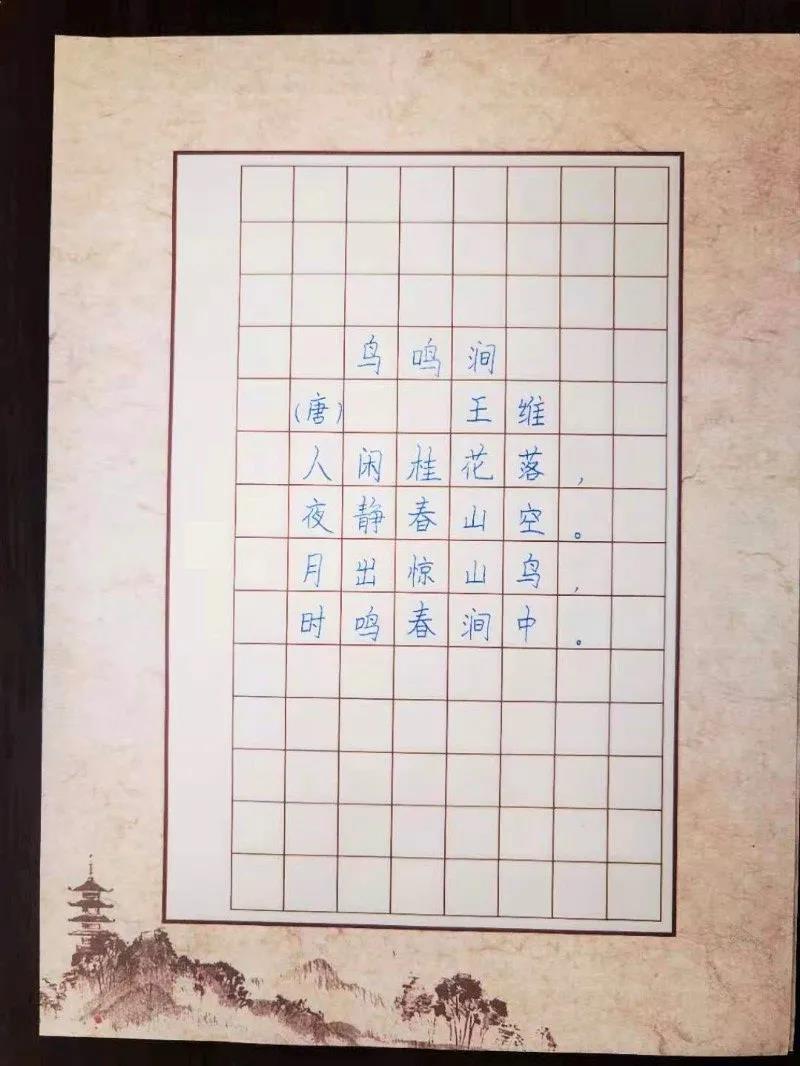 鸟鸣涧
(唐) 王维
人闲桂花落,
夜静春山空。
月出惊山鸟,
时鸣春涧中。